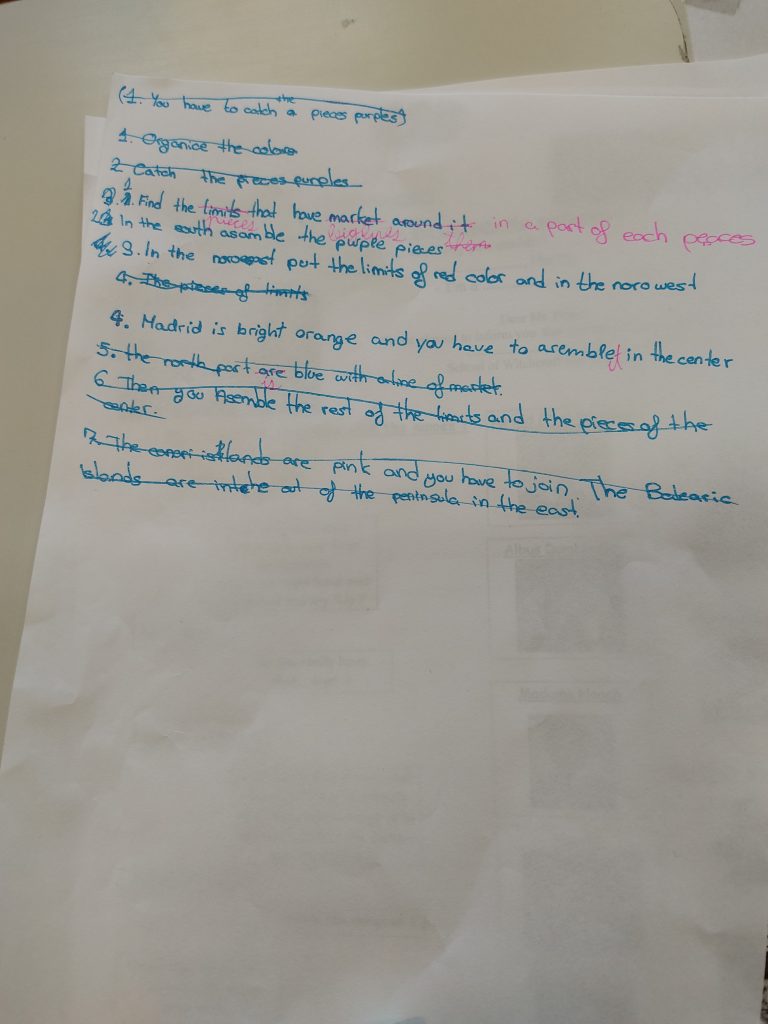 (1. You have to catch a the pieces purples)
1. Organice the colors
2 Catch the pieces purples
1. Find the limits that have market around it in a part of each peaces
pieces
2. In the south asamble the purple pieces them
3. In the noroeast put the limits of red color and in the noro west
4. The pieces of limits
4. Madrid is bright orange and you have to asemble it in the center
5. the north part are blue with a line of market.
is
6 Then you Asemble the rest of the limits and the pieces of the
center.
7. The canari islands are pink and you have to join. The Balearic
Islands are in the out of the peninsula in the east.